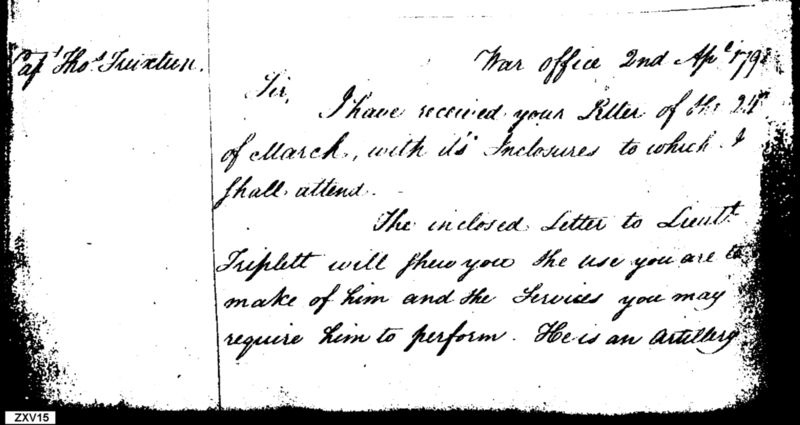 Capt Thos Truxtun.
War office 2nd Apl 179
Sir,
I have received your Letter of the 24th
of March, with it's Inclosures to which I
shall attend.
The inclosed Letter to Lieutt
Triplett will shew you the use you are to
make of him and the Services you may
require him to perform. He is an Artillery
ZXV15